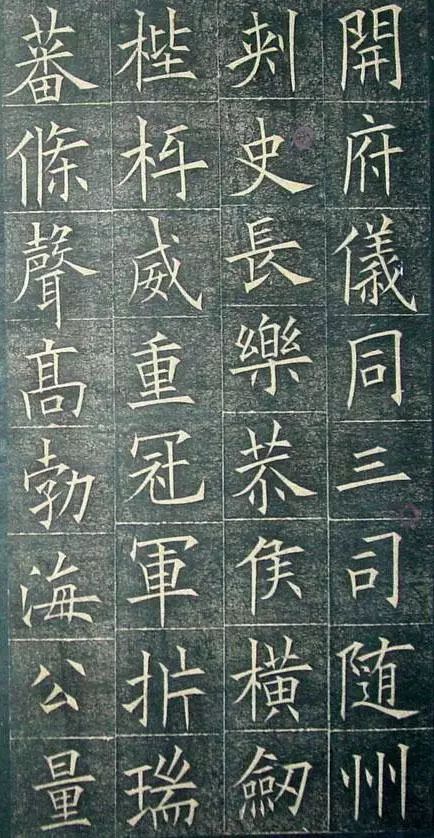 開府儀同三司随州
刺史長樂恭侯橫劒
梐枑威重冠軍析瑞
蕃條聲髙勃海公量